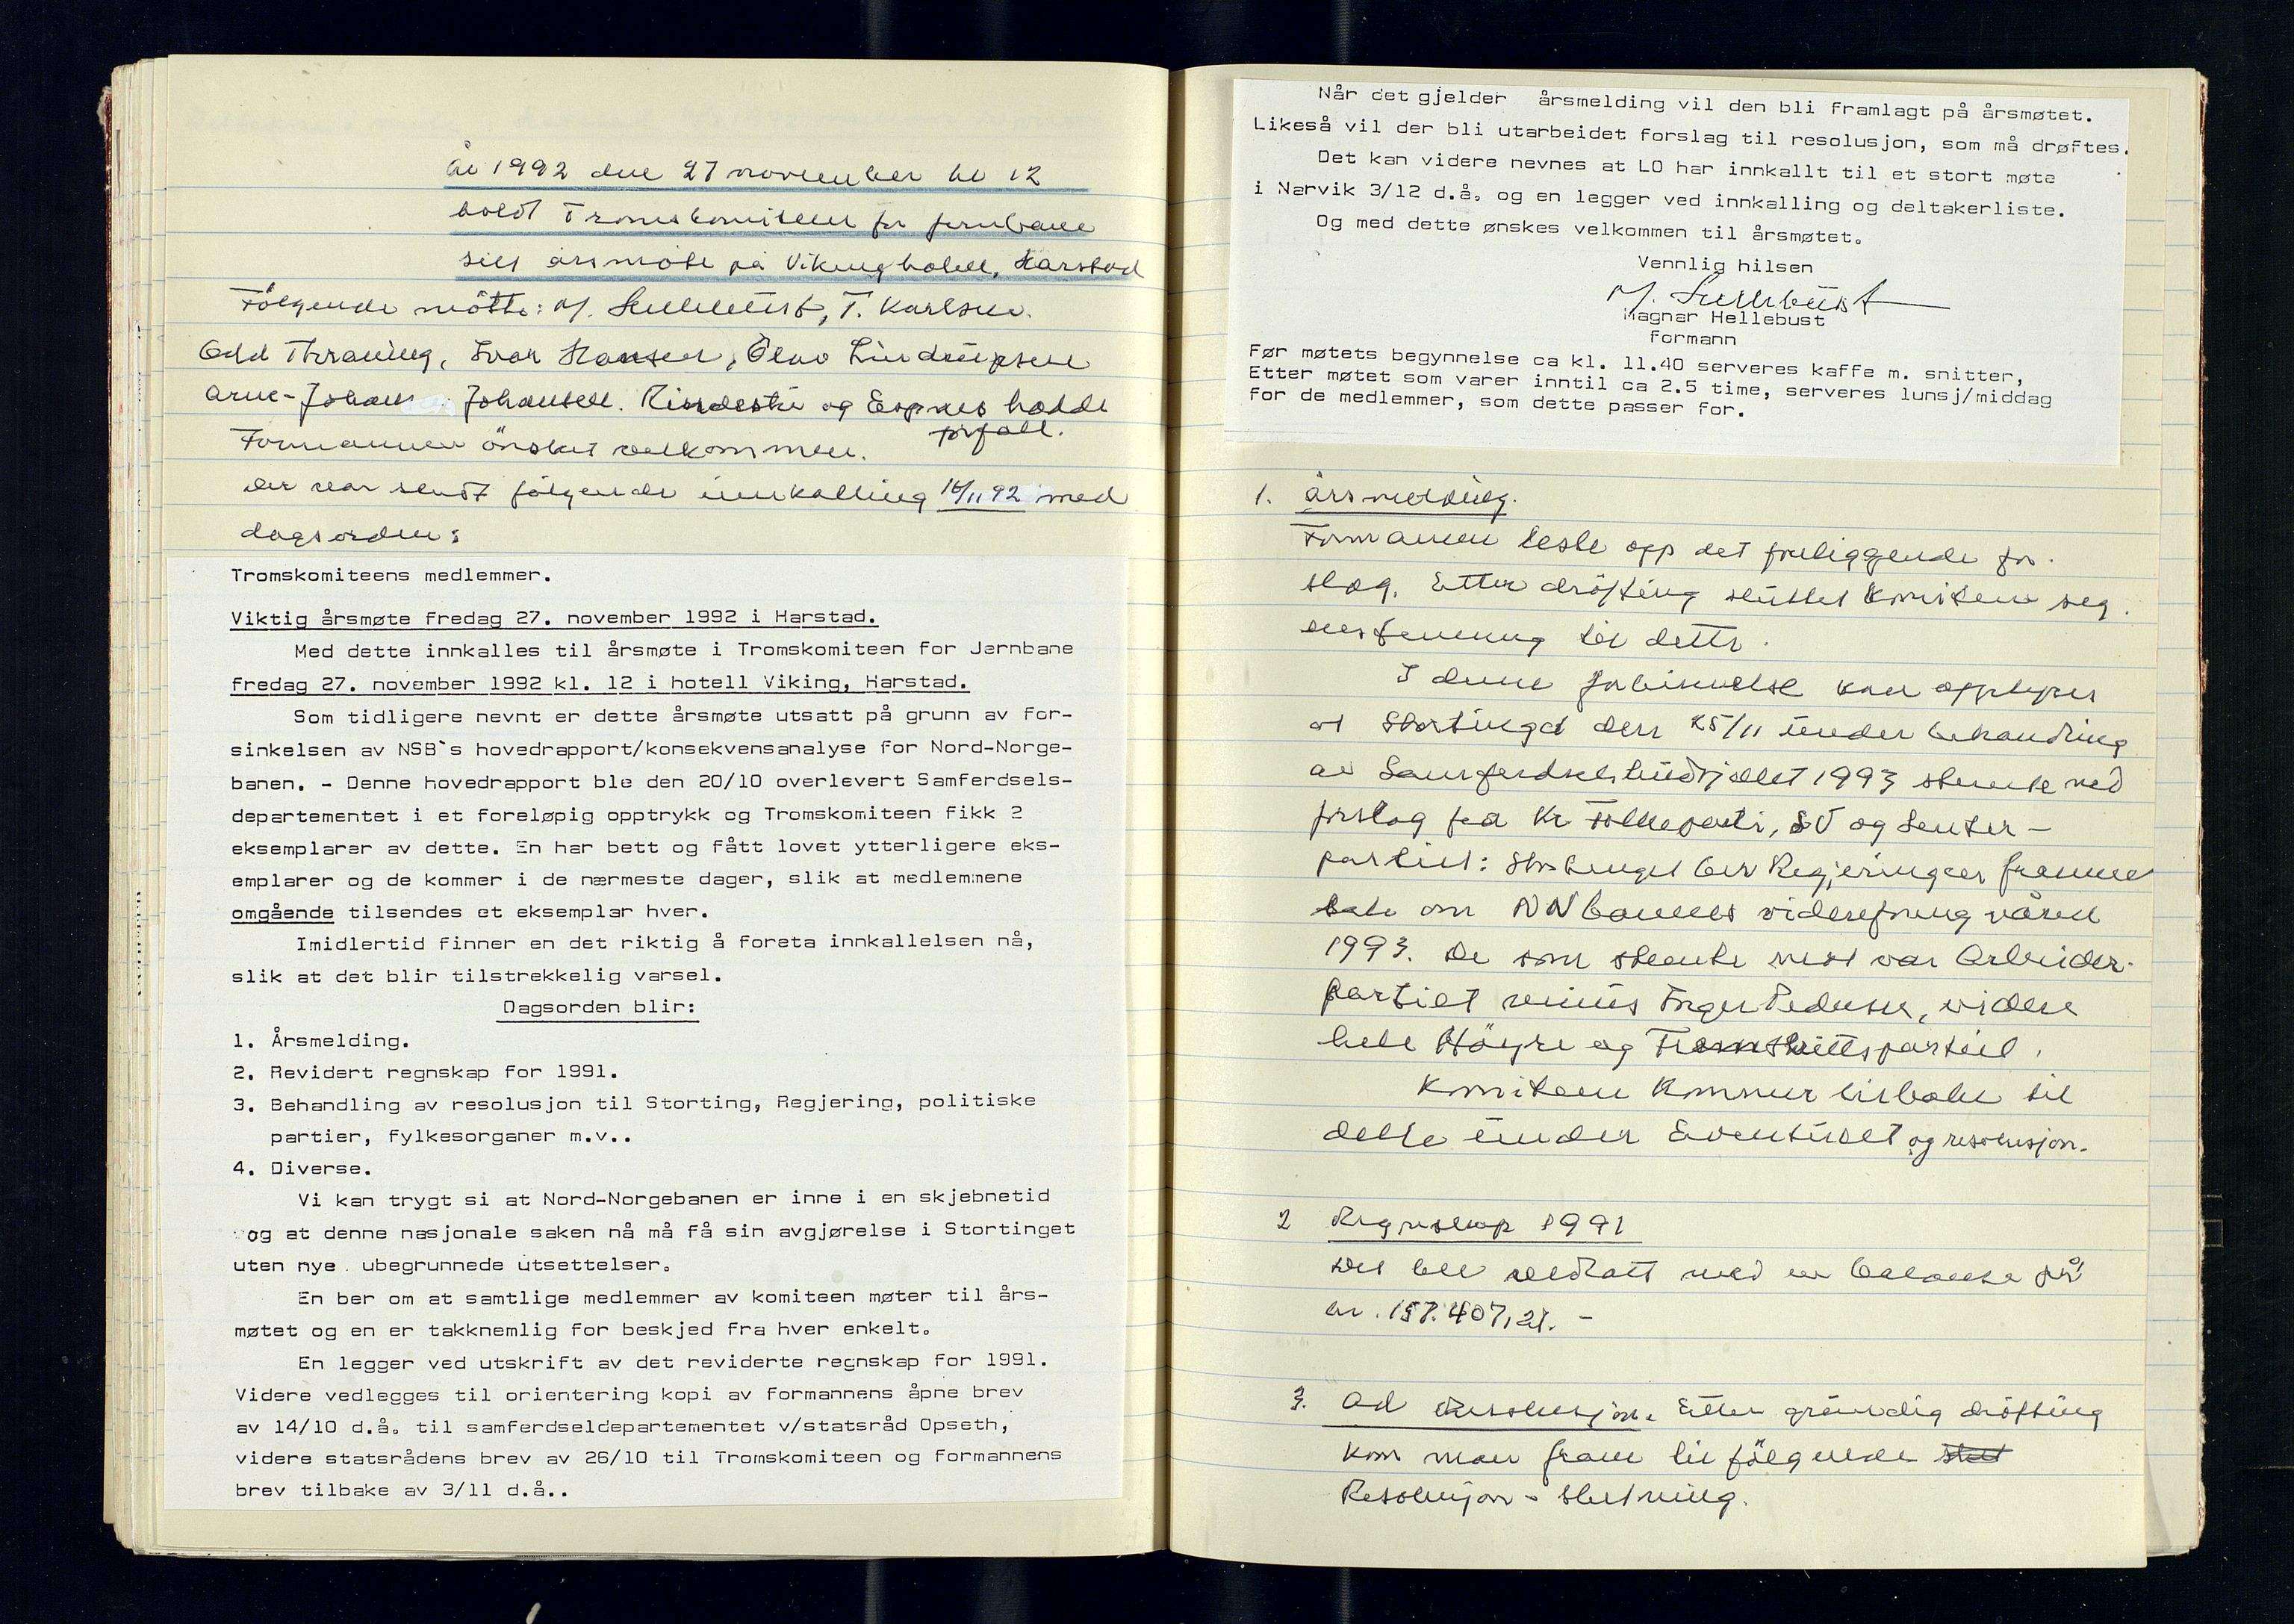 År 1992 den 27 november kl 12
holdt Tromskomiteen for jernbane
sitt årsmöte på Viking hotell, Harstad
Fölgende mötte: M. Hellebust, T. Karlsen.
Odd Thraning, Ivar Hansen, Olav Lindrupsen
Arne-Johan Johansen. Rindestu og Espnes hadde
forfall.
Formannen önsket velkommen.
Der var sendt fölgende innkalling 16/11 92 med
dagsorden:
Tromskomiteens medlemmer.
Viktig årsmøte fredag 27. november 1992 i Harstad.
Med dette innkalles til årsmøte i Tromskomiteen for Jernbane
fredag 27. november 1992 kl. 12 i hotell Viking, Harstad.
Som tidligere nevnt er dette årsmøte utsatt på grunn av for-
sinkelsen av NSB`s hovedrapport/konsekvensanalyse for Nord-Norge-
banen. - Denne hovedrapport ble den 20/10 overlevert Samferdsels-
departementet i et foreløpig opptrykk og Tromskomiteen fikk 2
eksemplarer av dette. En har bett og fått lovet ytterligere eks-
emplarer og de kommer i de nærmeste dager, slik at medlemmene
omgående tilsendes et eksemplar hver.
Imidlertid finner en det riktig å foreta innkallelsen nå,
slik at det blir tilstrekkelig varsel.
Dagsorden blir:
1. Årsmelding.
2. Revidert regnskap for 1991.
3. Behandling av resolusjon til Storting, Regjering, politiske
partier, fylkesorganer m.v..
4. Diverse.
Vi kan trygt si at Nord-Norgebanen er inne i en skjebnetid
og at denne nasjonale saken nå må få sin avgjørelse i Stortinget
uten nye ubegrunnede utsettelser.
En ber om at samtlige medlemmer av komiteen møter til års-
møtet og en er takknemlig for beskjed fra hver enkelt.
En legger ved utskrift av det reviderte regnskap for 1991.
Videre vedlegges til orientering kopi av formannens åpne brev
av 14/10 d.å. til samferdseldepartementet v/statsråd Opseth,
videre statsrådens brev av 26/10 til Tromskomiteen og formannens
brev tilbake av 3/11 d.å..
Når det gjelder årsmelding vil den bli framlagt på årsmøtet.
Likeså vil der bli utarbeidet forslag til resolusjon, som må drøftes.
Det kan videre nevnes at LO har innkallt til et stort møte
i Narvik 3/12 d.å. og en legger ved innkalling og deltakerliste.
Og med dette ønskes velkommen til årsmøtet.
Vennlig hilsen
M. Hellebust
Magnar Hellebust
formann
Før møtets begynnelse ca kl. 11.40 serveres kaffe m. snitter,
Etter møtet som varer inntil ca 2.5 time, serveres lunsj/middag
for de medlemmer, som dette passer for.
1. årsmelding.
Formannen leste opp det foreliggende for-
slag. Etter dröfting sluttet komiteen seg
enstemmig til dette.
I denne forbindelse kan opplyses
at Stortinget den 25/11 under behandling
av Samferdselsbudsjettet 1993 stemte ned
forslag fra Kr Folkeparti, SV og Senter-
partiet: Stortinget ber Regjeringen fremme
sak om NNbanens videreföring våren
1993. De som stemte mot var Arbeider-
partiet minus Inger Pedersen, videre
hele Höyre og Fremskrittspartiet.
Komiteen kommer tilbake til
dette under Eventuelt og resolusjon.
2 Regnskap 1991
Det ble vedtatt med en balanse på
kr. 157.407,21.-
3. Ad Resolusjon. Etter grundig dröfting
kom man fram til fölgende
Resolusjon - slutning.